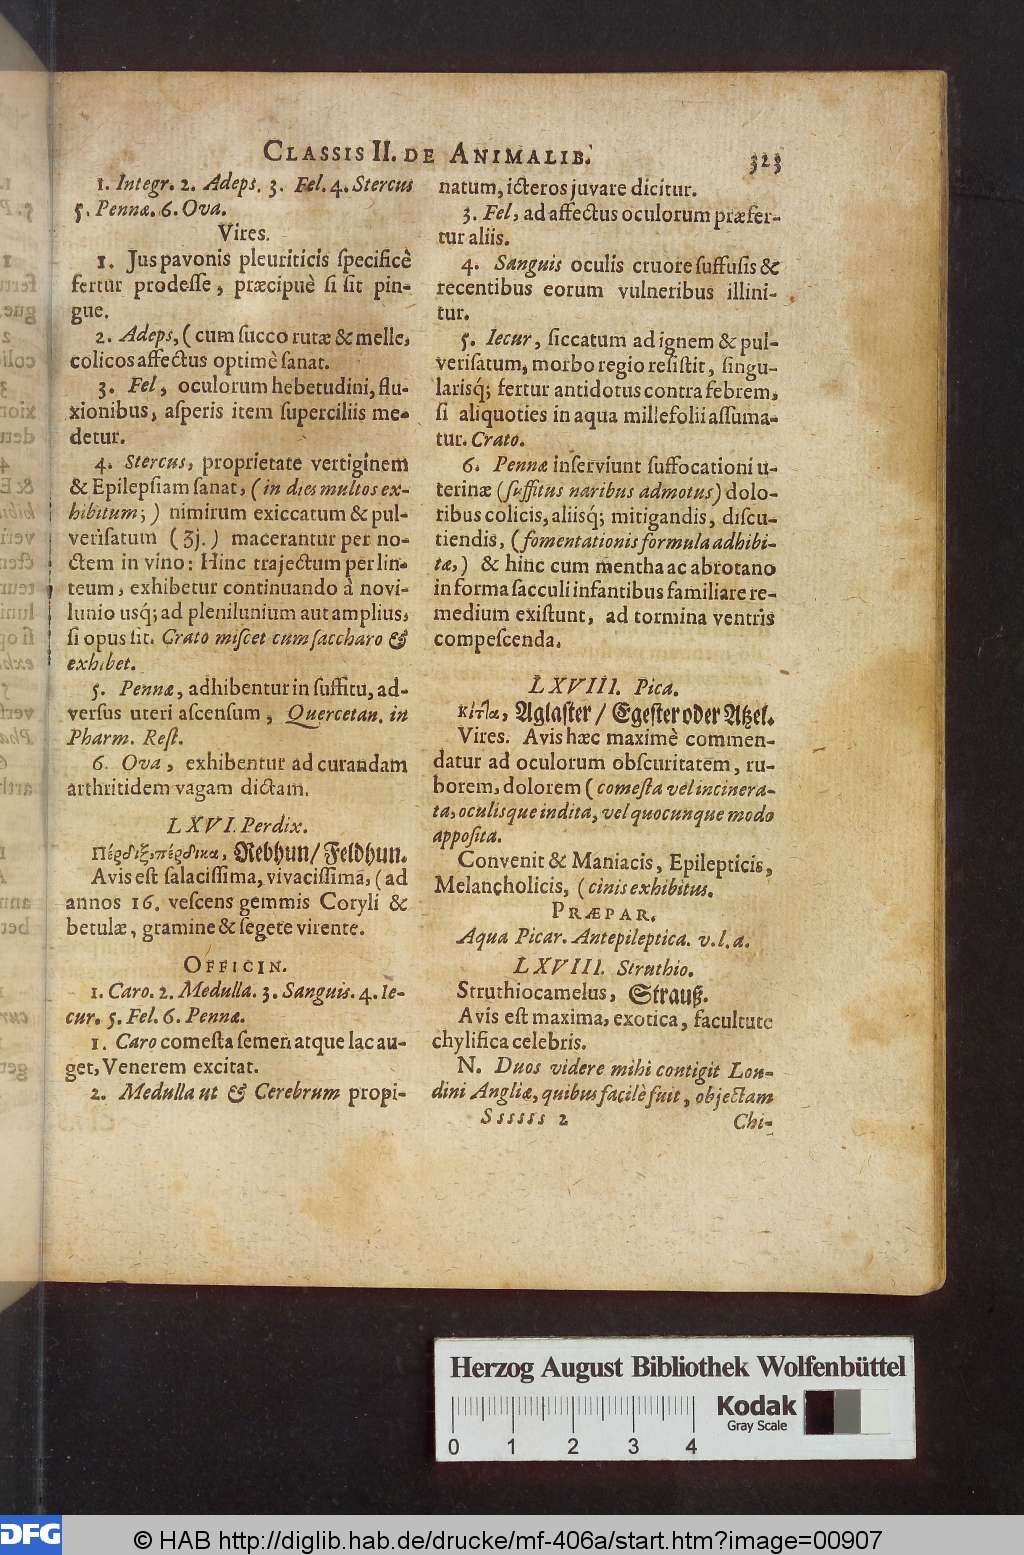 CLASSIS II. DE ANIMALIB. 323
1. Integr. 2. Adeps. 3. Fel. 4. Stercus
5. Pennæ. 6. Ova.
Vires.
1. Jus pavonis pleuriticis ſpecificè
fertur prodeſſe, præcipuè ſi ſit pin-
gue.
2. Adeps, (cum ſucco rutæ & melle,
colicos affectus optimè ſanat.
3. Fel, oculorum hebetudini, flu-
xionibus, aſperis item ſuperciliis me-
detur.
4. Stercus, proprietate vertiginem
& Epilepſiam ſanat, (in dies multos ex-
hibitum;) nimirum exiccatum & pul-
veriſatum (ʒj.) macerantur per no-
ctem in vino: Hinc trajectum per lin-
teum, exhibetur continuando à novi-
lunio usq; ad plenilunium aut amplius,
ſi opus ſit. Crato miſcet cum ſaccharo &
exhibet.
5. Pennæ, adhibentur in ſuffitu, ad-
verſus uteri aſcenſum, Quercetan. in
Pharm. Reſt.
6. Ova, exhibentur ad curandam
arthritidem vagam dictam.
LXVI. Perdix.
Πέρδιξ, πέρδικα, Rebhun/ Feldhun.
Avis eſt ſalaciſſima, vivaciſſima, (ad
annos 16. veſcens gemmis Coryli &
betulæ, gramine & ſegete virente.
OFFICIN.
1. Caro. 2. Medulla. 3. Sanguis. 4. Ie-
cur. 5. Fel. 6. Pennæ.
1. Caro comeſta ſemen atque lac au-
get, Venerem excitat.
2. Medulla ut & Cerebrum propi-
natum, icteros juvare dicitur.
3. Fel, ad affectus oculorum præfer-
tur aliis.
4. Sanguis oculis cruore ſuffuſis &
recentibus eorum vulneribus illini-
tur.
5. Iecur, ſiccatum ad ignem & pul-
veriſatum, morbo regio reſiſtit, ſingu-
larisq; fertur antidotus contra febrem,
ſi aliquoties in aqua millefolii aſſuma-
tur. Crato.
6. Pennæ inſerviunt ſuffocationi u-
terinæ (ſuffitus naribus admotus) dolo-
ribus colicis, aliisq; mitigandis, diſcu-
tiendis, (fomentationis formula adhibi-
tæ,) & hinc cum mentha ac abrotano
in forma ſacculi infantibus familiare re-
medium exiſtunt, ad tormina ventris
compeſcenda.
LXVIII. Pica.
κίττα, Aglaſter / Egeſter oder Atzel.
Vires. Avis hæc maximè commen-
datur ad oculorum obſcuritatem, ru-
borem, dolorem (comeſta vel incinera-
ta, oculisque indita, vel quocunque modo
appoſita.
Convenit & Maniacis, Epilepticis,
Melancholicis, (cinis exhibitus.
PRÆPAR.
Aqua Picar. Antepileptica. v. l. a.
LXVIII. Struthio.
Struthiocamelus, Strauß.
Avis eſt maxima, exotica, facultate
chylifica celebris.
N. Duos videre mihi contigit Lon-
dini Angliæ, quibus facilè fuit, objectam
Ssssss 2 Chi-
Herzog August Bibliothek Wolfenbüttel
Kodak
Gray Scale
0 1 2 3 4
DFG
© HAB http://diglib.hab.de/drucke/mf-406a/start.htm?image=00907